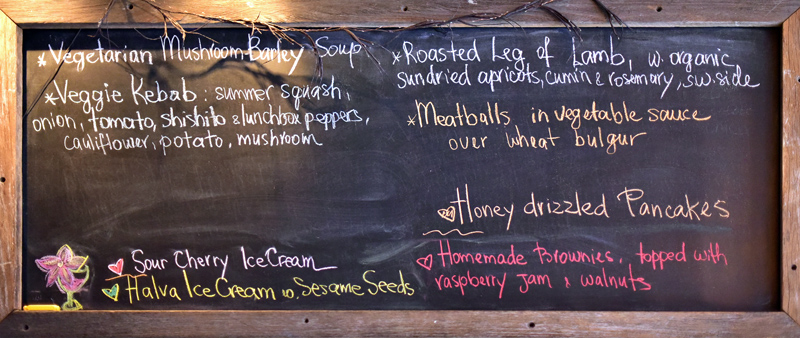 *Vegetarian Mushroom Barley Soup
*Veggie Kebab: summer squash,
onion, tomato, shishito & lunchbox peppers,
cauliflower, potato, mushroom
*Roasted Leg of Lamb, w. organic
sundried apricots, cumin & rosemary, sw. side
*Meatballs in vegetable sauce
over wheat bulgur
Honey drizzled Pancakes
Homemade Brownies, topped with
raspberry jam & walnuts
Sour Cherry IceCream
Halva IceCream w. Sesame Seeds